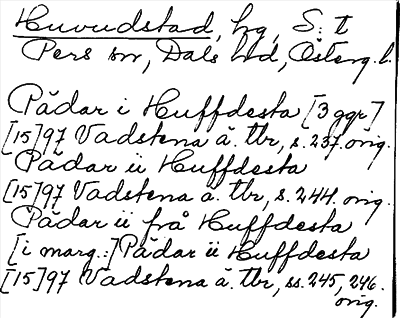 Huvudstad, hg, S:t
Pers sn, Dals hd, Österg. l.
Pädar i Huffdesta [3 ggr]
[15]97 Vadstena ä. tbr, s. 237. orig.
Pädar ii Huffdesta
[15]97 Vadstena ä. tbr, s. 244. orig.
Pädar ii frå Huffdesta
[i marg.:] Pädar ii Huffdesta
[15]97 Vadstena ä. tbr, ss. 245, 246.
orig.